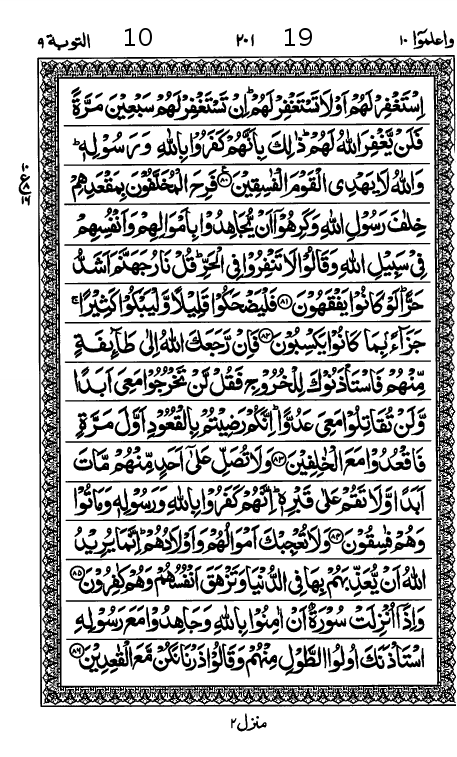 واعلموٓا ١٠ 19 ٢٠١ 10 التوبة ٩
اِسْتَغْفِرْ لَهُمْ اَوْ لَا تَسْتَغْفِرْ لَهُمْ ؕ اِنْ تَسْتَغْفِرْ لَهُمْ سَبْعِيْنَ مَرَّةً
فَلَنْ يَّغْفِرَ اللّٰهُ لَهُمْ ؕ ذٰلِكَ بِاَنَّهُمْ كَفَرُوْا بِاللّٰهِ وَ رَسُوْلِهٖ ؕ
وَاللّٰهُ لَا يَهْدِى الْقَوْمَ الْفٰسِقِيْنَ ۧ۝۸۰ فَرِحَ الْمُخَلَّفُوْنَ بِمَقْعَدِهِمْ
خِلٰفَ رَسُوْلِ اللّٰهِ وَكَرِهُوْۤا اَنْ يُّجَاهِدُوْا بِاَمْوَالِهِمْ وَاَنْفُسِهِمْ
فِىْ سَبِيْلِ اللّٰهِ وَقَالُوْا لَا تَنْفِرُوْا فِى الْحَرِّ ؕ قُلْ نَارُ جَهَنَّمَ اَشَدُّ
حَرًّا ؕ لَوْ كَانُوْا يَفْقَهُوْنَ ۝۸۱ فَلْيَضْحَكُوْا قَلِيْلًا وَّلْيَبْكُوْا كَثِيْرًا ۚ
جَزَآءًۢ بِمَا كَانُوْا يَكْسِبُوْنَ ۝۸۲ فَاِنْ رَّجَعَكَ اللّٰهُ اِلٰى طَآئِفَةٍ
مِّنْهُمْ فَاسْتَاْذَنُوْكَ لِلْخُرُوْجِ فَقُلْ لَّنْ تَخْرُجُوْا مَعِىَ اَبَدًا
وَّلَنْ تُقَاتِلُوْا مَعِىَ عَدُوًّا ؕ اِنَّكُمْ رَضِيْتُمْ بِالْقُعُوْدِ اَوَّلَ مَرَّةٍ
فَاقْعُدُوْا مَعَ الْخٰلِفِيْنَ ۝۸۳ وَلَا تُصَلِّ عَلٰٓى اَحَدٍ مِّنْهُمْ مَّاتَ
اَبَدًا وَّلَا تَقُمْ عَلٰى قَبْرِهٖ ؕ اِنَّهُمْ كَفَرُوْا بِاللّٰهِ وَرَسُوْلِهٖ وَمَاتُوْا
وَهُمْ فٰسِقُوْنَ ۝۸۴ وَلَا تُعْجِبْكَ اَمْوَالُهُمْ وَاَوْلَادُهُمْ ؕ اِنَّمَا يُرِيْدُ
اللّٰهُ اَنْ يُّعَذِّبَهُمْ بِهَا فِى الدُّنْيَا وَتَزْهَقَ اَنْفُسُهُمْ وَهُمْ كٰفِرُوْنَ ۝۸۵
وَاِذَاۤ اُنْزِلَتْ سُوْرَةٌ اَنْ اٰمِنُوْا بِاللّٰهِ وَجَاهِدُوْا مَعَ رَسُوْلِهِ
اسْتَاْذَنَكَ اُولُوا الطَّوْلِ مِنْهُمْ وَقَالُوْا ذَرْنَا نَكُنْ مَّعَ الْقٰعِدِيْنَ ۝۸۶
منزل ٢